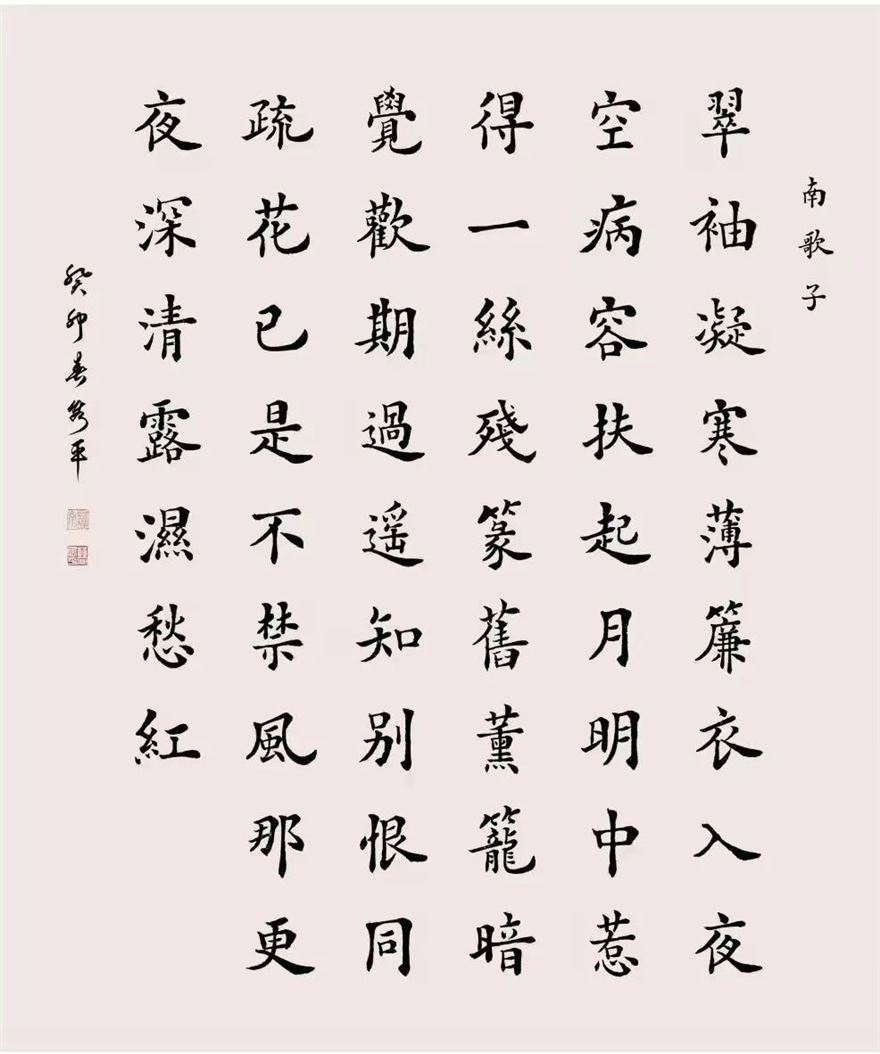 南歌子
翠袖凝寒薄簾衣入夜
空病容扶起月明中惹
得一絲殘篆舊薰籠暗
覺歡期過遥知别恨同
疏花已是不禁風那更
夜深清露濕愁紅
癸卯春 平